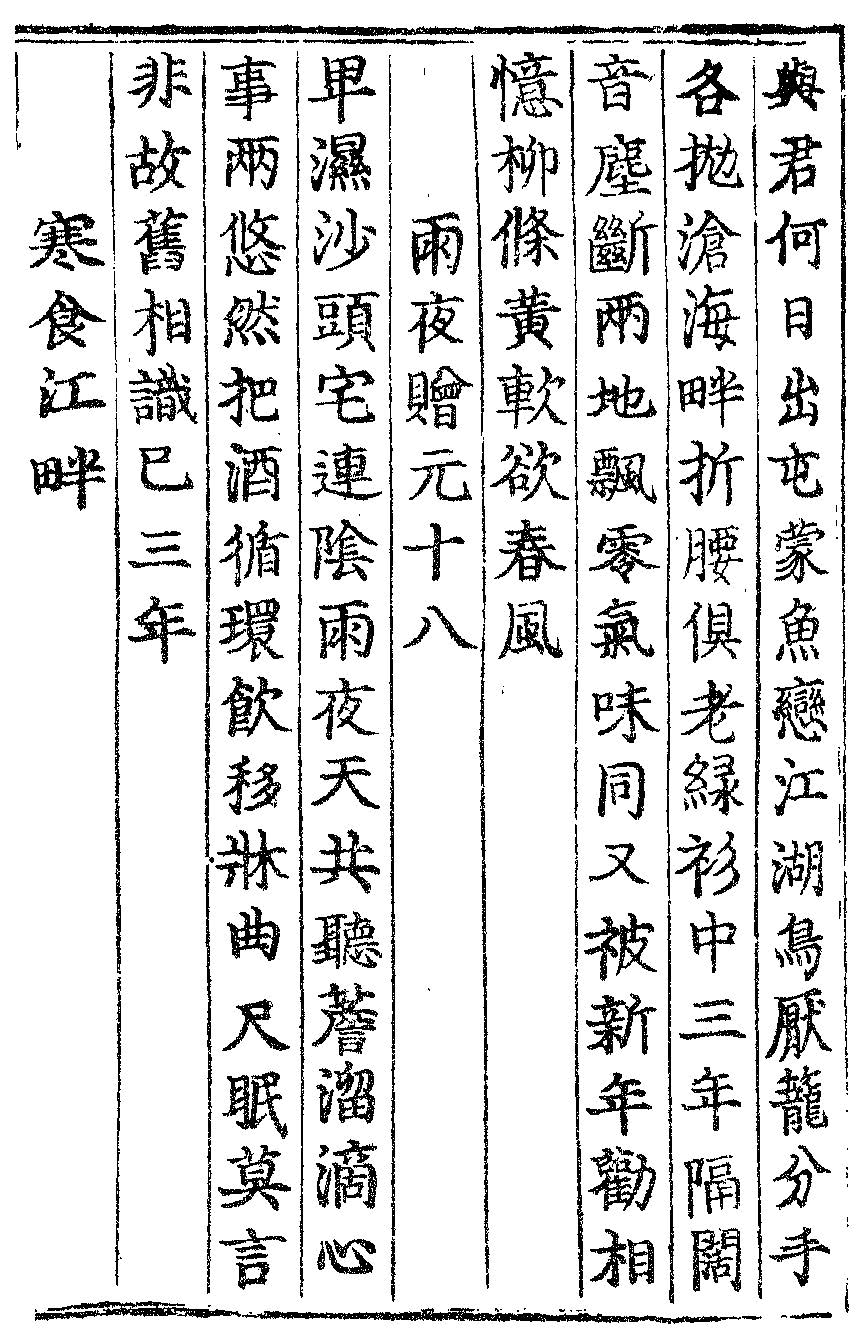 與君何日出屯蒙魚戀江湖鳥厭籠分手
各抛滄海畔折腰俱老緑衫中三年隔闊
音塵斷兩地飄零氣味同又被新年勸相
憶柳條黄軟欲春風
雨夜贈元十八
卑濕沙頭宅連陰雨夜天共聽簷溜滴心
事兩悠然把酒循環飲移牀曲尺眠莫言
非故舊相識已三年
寒食江畔